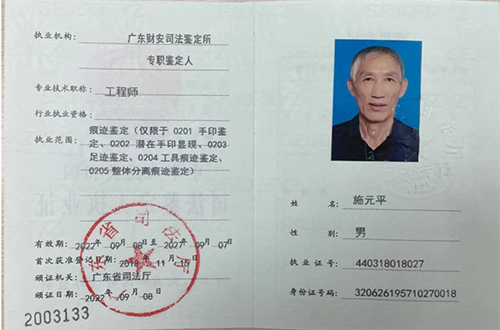 执业机构: 广东财安司法鉴定所
专职鉴定人
专业技术职称: 工程师
行业执业资格:
执业范围: 痕迹鉴定(仅限于 0201 手印鉴
定、0202 潜在手印显现、0203
足迹鉴定、0204 工具痕迹鉴定、
0205 整体分离痕迹鉴定)
有效期: 2022 年 09 月 08 日至 2027 年 09 月 07 日
首次获准登记日期: 2018 年 11 月 15 日
颁证机关: 广东省司法厅
颁证日期: 2022 年 09 月 08 日
2003133
广东省司法厅
姓 名: 施元平
性 别: 男
执业证号: 440318018027
身份证号码: 320626195710270018